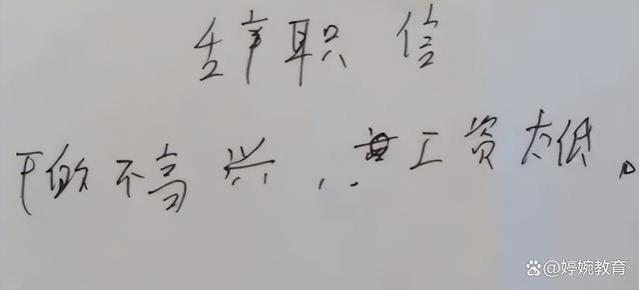 辞职信
干的不高兴,工资太低。
@婷婉教育